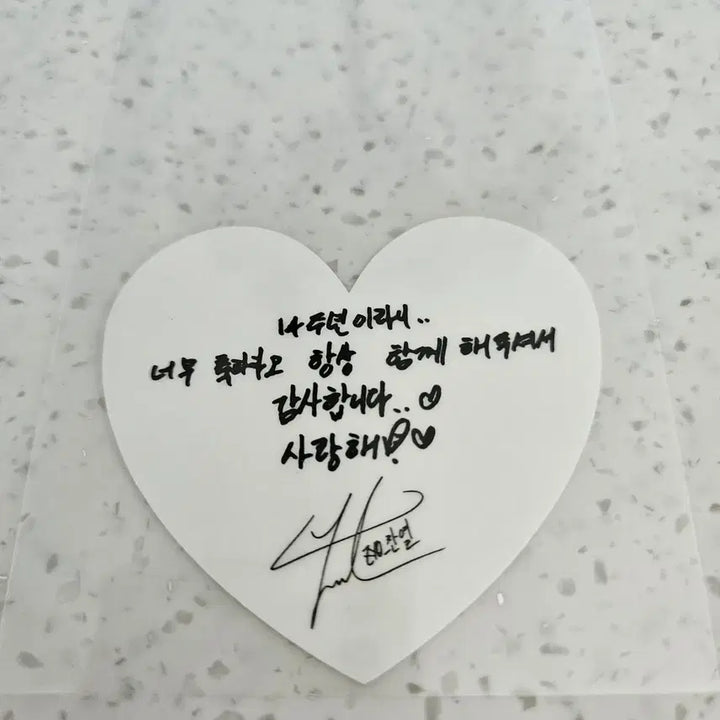 14주년이라니..
너무 축하하고 항상 함께 해주셔서
감사합니다..♡
사랑해!♡
EXO 찬열